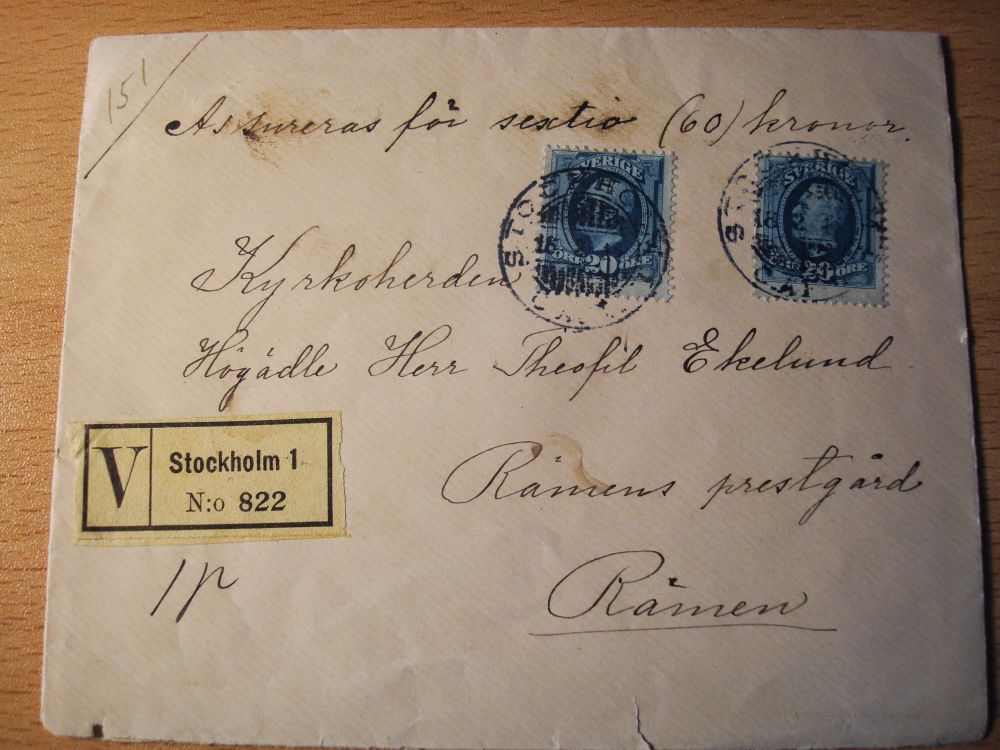 151
Assureras för sextio (60) kronor.
SVERIGE
20
ÖRE ÖRE
SVERIGE
20 ÖRE
STOCKHOLM
Kyrkoherden
Högädle Herr Theofil Ekelund
Rämens prestgård
Rämen
V
Stockholm 1
N:o 822
1p